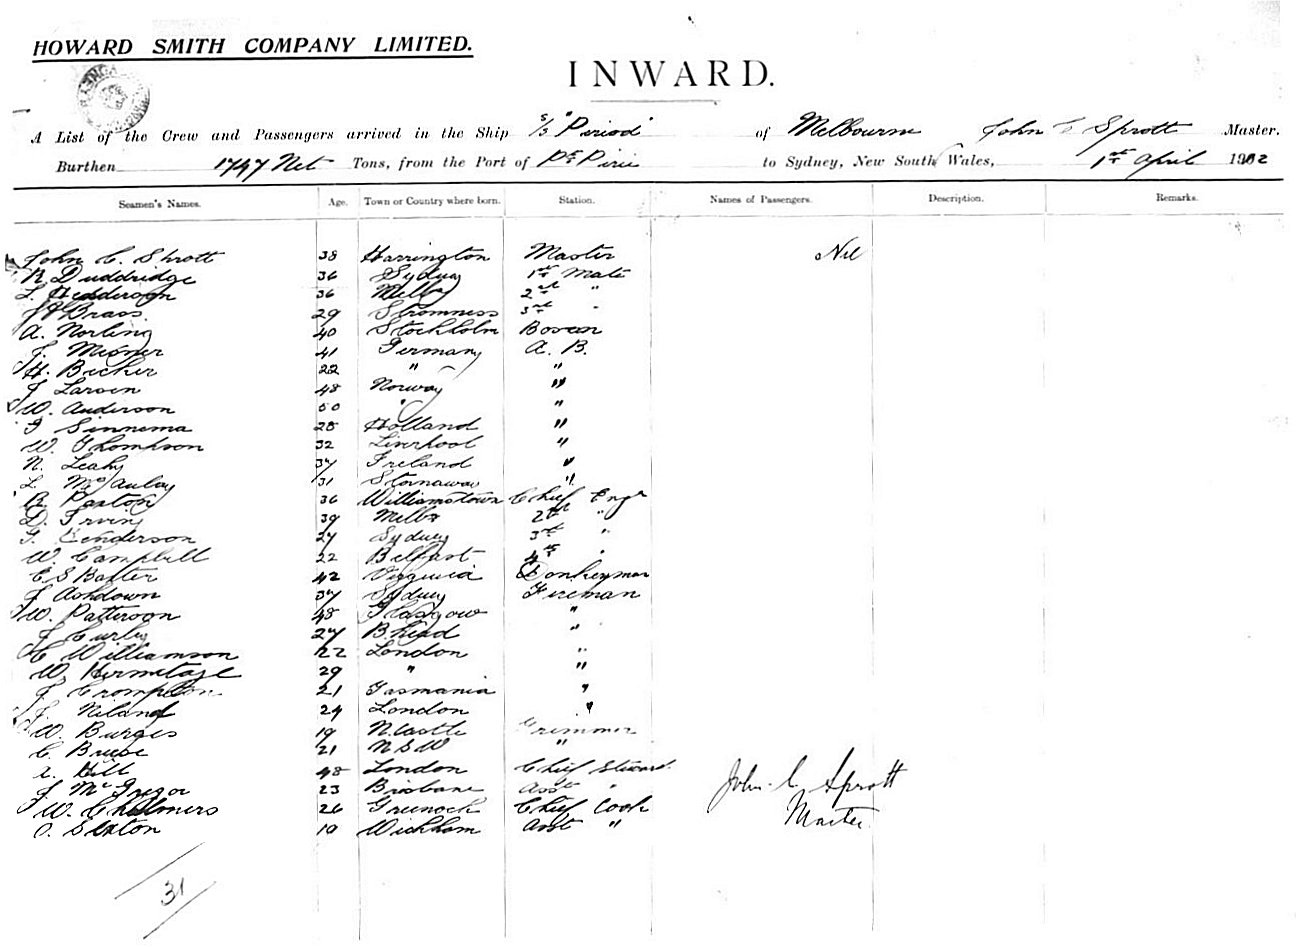 HOWARD SMITH COMPANY LIMITED.
INWARD.
A List of the Crew and Passengers arrived in the Ship S/S "Period" of Melbourne John C Sprott Master.
Burthen 1747 Net Tons, from the Port of Pt Pirie to Sydney, New South Wales, 1st April 1902
Seamen's Names. Age. Town or Country where born. Station. Names of Passengers. Description. Remarks.
John C. Sprott 38 Harrington Master Nil
R Duddridge 36 Sydney 1st Mate
L. Hedderson 36 Melb 2nd "
Brass 29 Stromness 3rd "
A. Norling 40 Stockholm Bosun
J. Meisner 41 Germany A. B.
H. Becker 22 " "
J Larsen 48 Norway "
W. Anderson 50 " "
Sinnema 28 Holland "
W. Thompson 32 Liverpool "
N. Leahy 37 Ireland "
L. McAulay 31 Stornaway "
R. Paxton 36 Williamstown Chief Engr
D. Irving 39 Melb 2nd "
Henderson 27 Sydney 3rd "
W. Campbell 22 Belfast 4th "
C S Baxter 42 Virginia Donkeyman
J Ashdown 37 Sydney Fireman
W. Patterson 48 Glasgow "
J Curley 27 B'head "
C Williamson 22 London "
W. Hermitage 29 " "
J. Crompton 21 Tasmania "
J. Niland 24 London "
W. Burges 19 N.Castle Trimmer
C. Bruce 21 N S W "
A. Hill 48 London Chief Steward
J McGregor 23 Brisbane Asst "
W. Chalmers 26 Greenock Chief Cook
O. Sexton 19 Wickham Asst "
John C. Sprott
Master
31